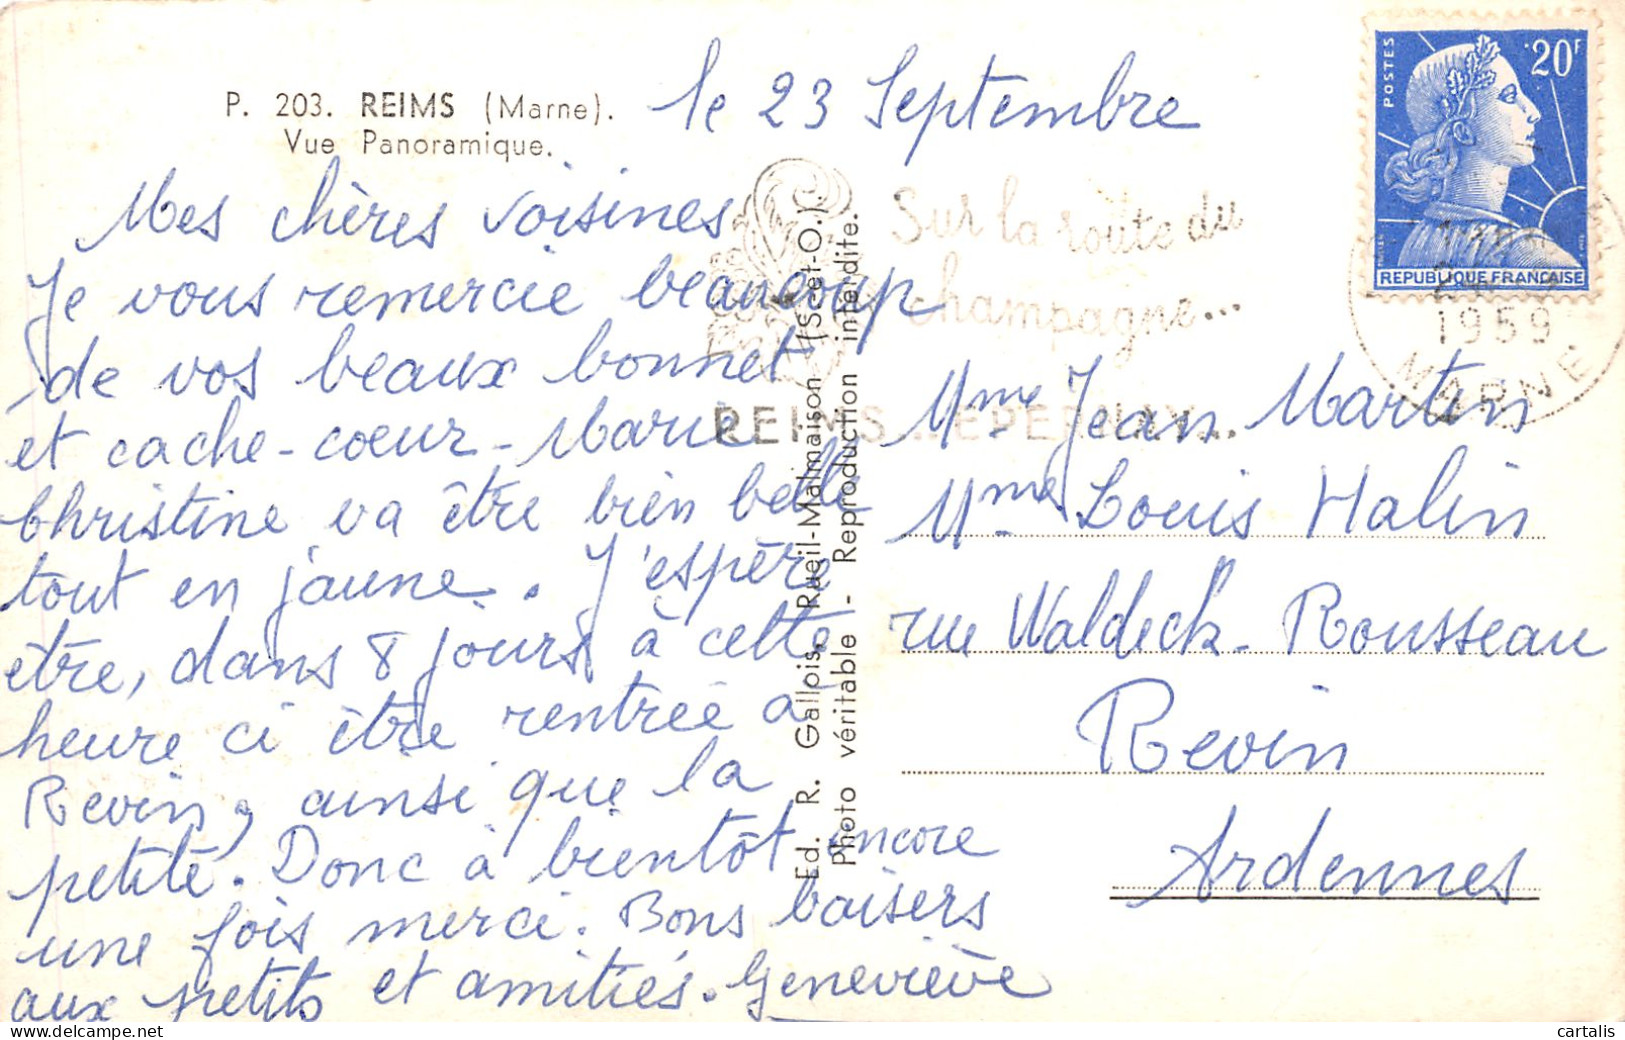 P. 203. REIMS (Marne).
Vue Panoramique.
le 23 Septembre
Mes chères voisines
Je vous remercie beaucoup
de vos beaux bonnet
et cache-coeur - Marie
Christine va être bien belle
tout en jaune. J'espère
être, dans 8 jours à cette
heure ci être rentrée à
Revin, ainsi que la
petite. Donc à bientôt encore
une fois merci. Bons baisers
aux petits et amitiés. Geneviève
Ed. R. Gallois, Rueil-Malmaison (S.-et-O.).
Photo véritable - Reproduction interdite.
Sur la route du
champagne...
REIMS... EPERNAY...
POSTES
20F
REPUBLIQUE FRANÇAISE
1959
MARNE
Mme Jean Martin
Mme Louis Halin
rue Waldeck-Rousseau
Revin
Ardennes
cartalis